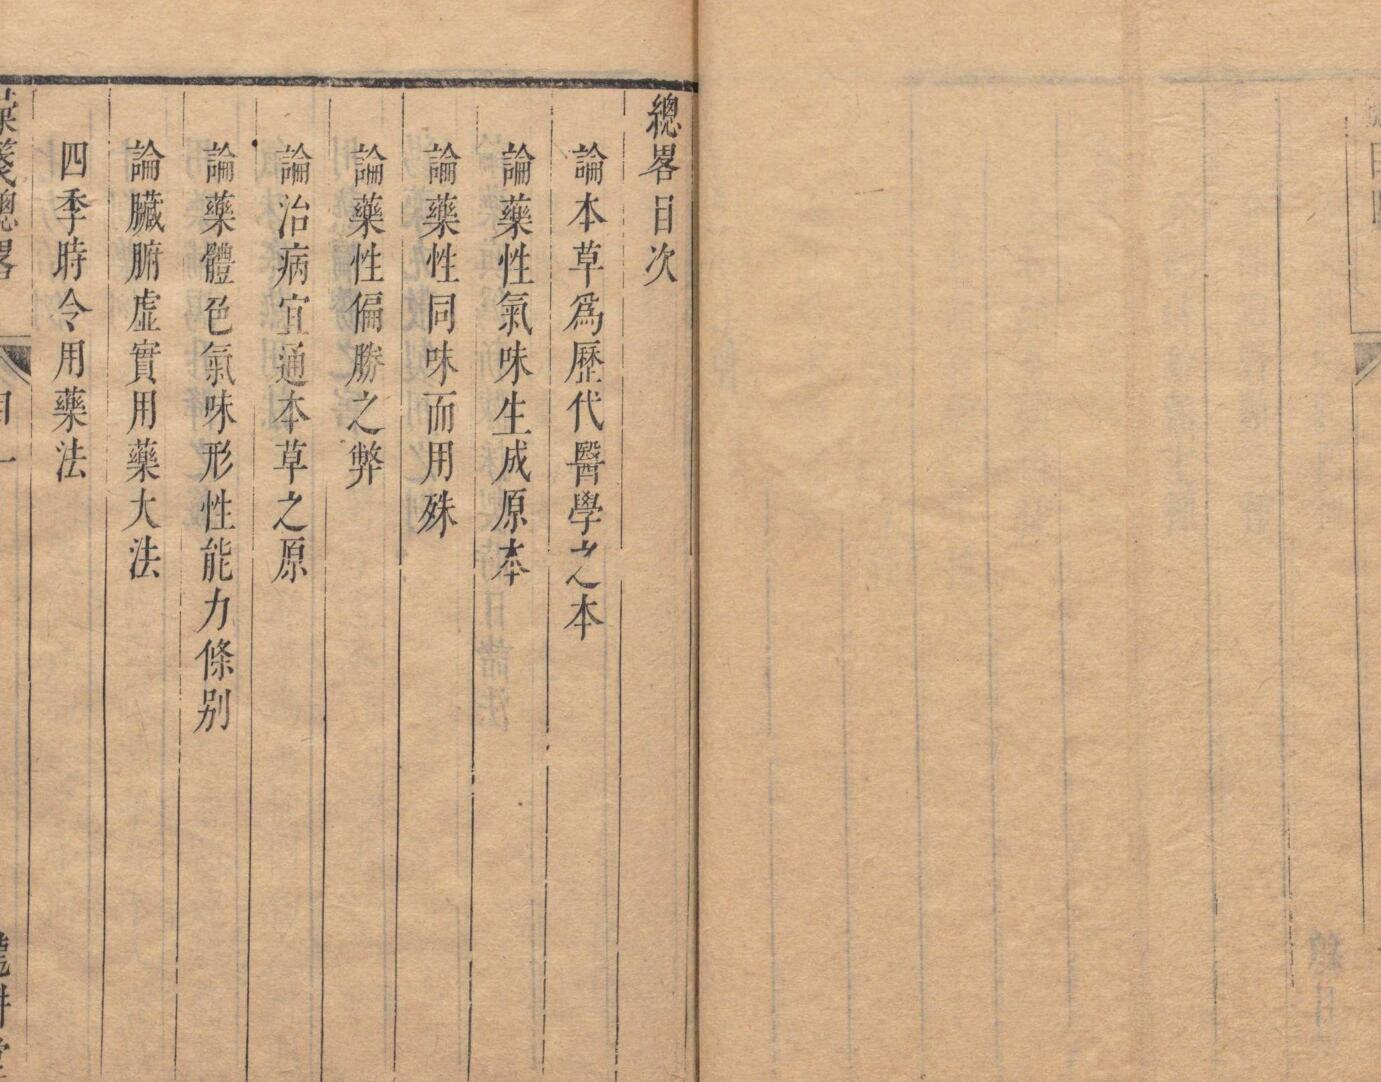 總畧目次
論本草爲歷代醫學之本
論藥性氣味生成原本
論藥性同味而用殊
論藥性偏勝之弊
論治病宜通本草之原
論藥體色氣味形性能力條别
論臟腑虛實用藥大法
四季時令用藥法
總畧